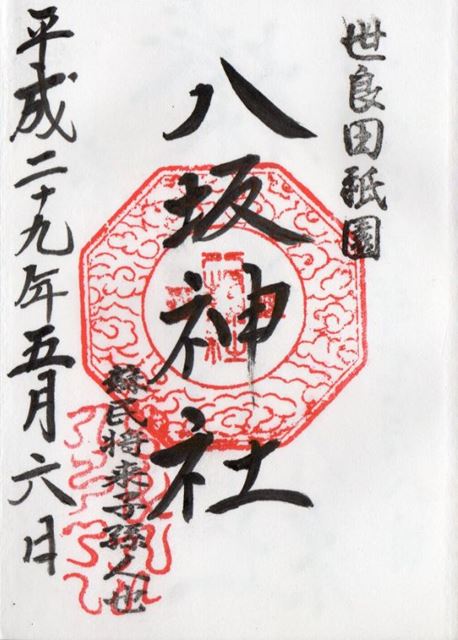 世良田祇園
八坂神社
蘇民将来子孫人也
平成二十九年五月六日